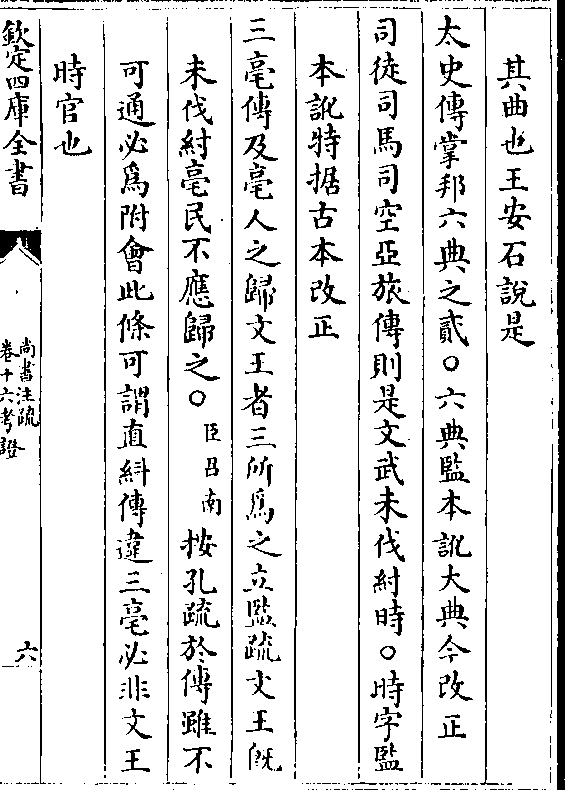 其曲也王安石說是
太史傳掌邦六典之貳○六典監本訛大典今改正
司徒司馬司空亞旅傳則是文武未伐紂時○時字監
本訛特据古本改正
三亳傳及亳人之歸文王者三所為之立監疏文王既
未伐紂亳民不應歸之○臣召南按孔疏於傳雖不
可通必為附會此條可謂直糾傳違三亳必非文王
時官也
欽定四庫全書
尚書注疏
卷十六考證
六